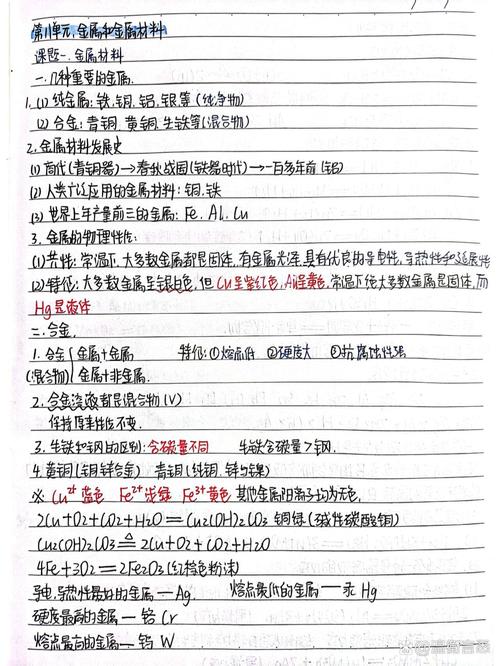 第11单元 金属和金属材料
课题一. 金属材料
一. 几种重要的金属.
1. (1) 纯金属: 铁, 铜, 铝, 银等 (纯净物)
(2) 合金: 青铜, 黄铜, 生铁等 (混合物)
2. 金属材料发展史
(1) 商代(青铜器)→春秋战国(铁器时代)→一百多年前(铝)
(2) 人类广泛应用的金属材料: 铜. 铁
(3) 世界上年产量前三的金属: Fe. Al. Cu
3. 金属的物理性性:
(1) 共性: 常温下, 大多数金属都是固体, 有金属光泽, 具有优良的导电性, 导热性和延展性
(2) 特征: 大多数金属呈银白色, 但Cu呈紫红色, 呈黄色. 常温下绝大多数金属是固体, 而
Hg是液体
二. 合金.
1. 合金 金属+金属 特征: ①熔点低 ②硬度大 ③抗腐蚀性强
(混合物) 金属+非金属.
2. 合金 都是混合物 (V)
保持原来性不变.
3. 生铁和钢的区别: 含碳量不同 生铁含碳量>钢.
4. 黄铜(铜锌合金) 青铜(纯铜, 锌与镍)
※ Cu²⁺蓝色 Fe²⁺浅绿 Fe³⁺黄色 其他金属阳离子均为无色,
2Cu+O2+CO2+H2O══Cu2(OH)2CO3 铜绿(碱性碳酸铜)
Cu2(OH)2CO3≜2Cu+O2+CO2+H2O
4Fe+3O2══2Fe2O3(红棕色粉沫)
导电.导热性最好的金属—Ag. 熔点最低的金属—汞 Hg
硬度最高的金属—铬 Cr
熔点最高的金属—钨 W